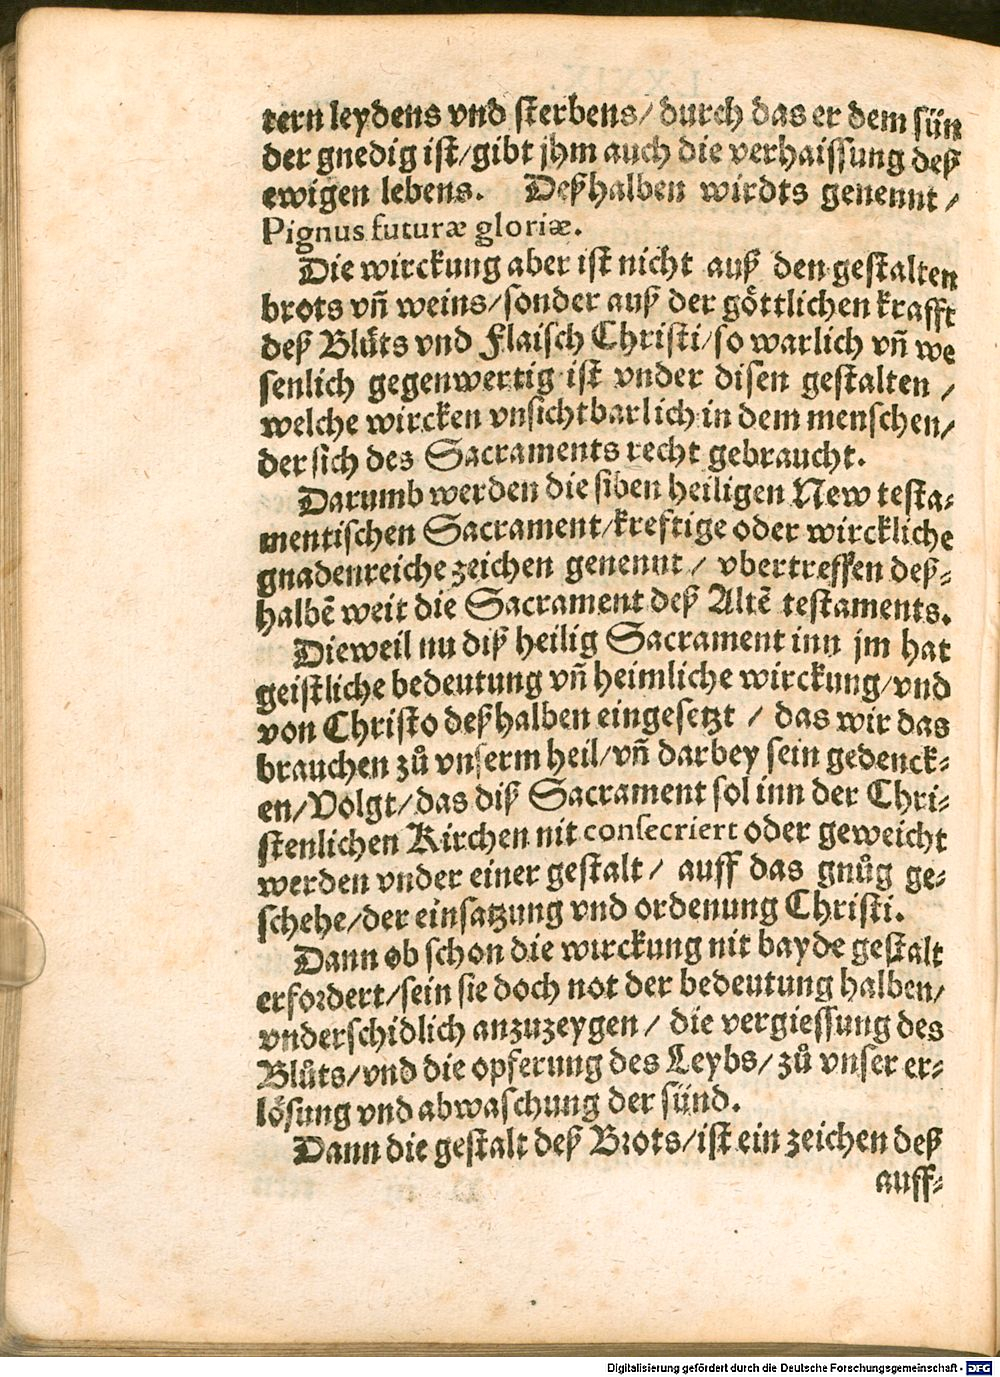 tern leydens vnd sterbens/ durch das er dem sün
der gnedig ist/gibt jhm auch die verhaissung deß
ewigen lebens. Deßhalben wirdts genennt/
Pignus futuræ gloriæ.
Die wirckung aber ist nicht auß den gestalten
brots vñ weins/sonder auß der göttlichen krafft
deß Blůts vnd Flaisch Christi/so warlich vñ we
senlich gegenwertig ist vnder disen gestalten/
welche wircken vnsichtbarlich in dem menschen/
der sich des Sacraments recht gebraucht.
Darumb werden die siben heiligen New testa⸗
mentischen Sacrament/kreftige oder wirckliche
gnadenreiche zeichen genennt/ vbertreffen deß⸗
halbē weit die Sacrament deß Altē testaments.
Dieweil nu diß heilig Sacrament inn jm hat
geistliche bedeutung vñ heimliche wirckung/vnd
von Christo deßhalben eingesetzt / das wir das
brauchen zů vnserm heil/vñ darbey sein gedenck⸗
en/Volgt/das diß Sacrament sol inn der Chri⸗
stenlichen Kirchen nit consecriert oder geweicht
werden vnder einer gestalt/ auff das gnůg ge⸗
schehe/der einsatzung vnd ordenung Christi.
Dann ob schon die wirckung nit bayde gestalt
erfordert/sein sie doch not der bedeutung halben/
vnderschidlich anzuzeygen / die vergiessung des
Blůts/vnd die opferung des Leybs/zů vnser er⸗
lösung vnd abwaschung der sünd.
Dann die gestalt deß Brots/ist ein zeichen deß
auff⸗
Digitalisierung gefördert durch die Deutsche Forschungsgemeinschaft - DFG